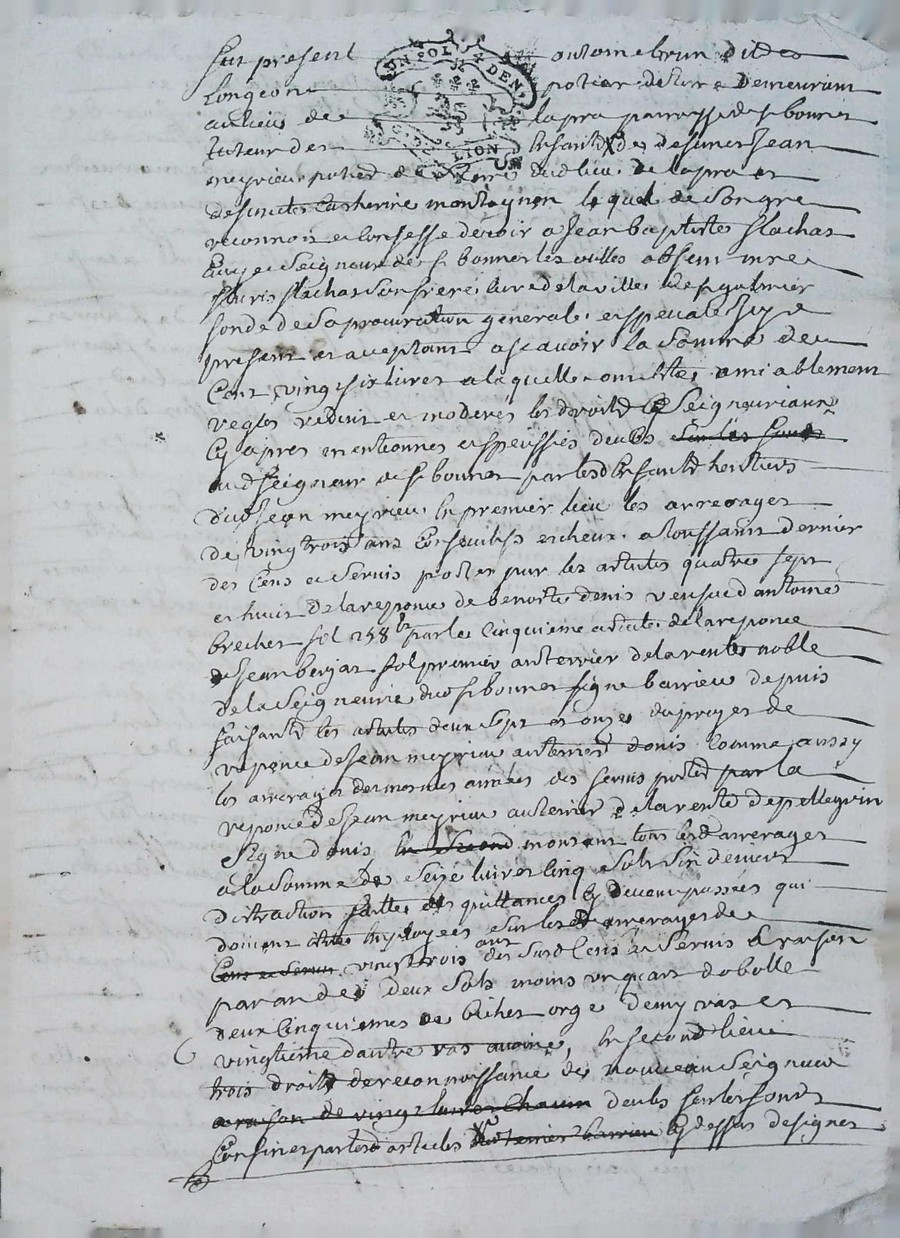 fut present antoine brun dit
Longeon potier de terre demeurant
au lieu de lapra parroisse de st bonnet
tuteur des Enfants de defunct Jean
meyrieu potier de terre dud lieu de lapra et
defuncte Catherine montagnon lequel de son gre
reconnoit et Confesse devoir a Jean baptiste flachat
Ecuyer Seigneur de st bonnet les oulles absent mre
flachat son frere Cure de la ville de st galmier
fonde de sa procuration generale et specialle icy
present et acceptant a scavoir la Somme de
Cent vingt six livres a laquelle ont estes amiablement
regles reduit et moderes les droits Seigneuriaux
Cy apres mentionnes et speciffies deubs sur les fonds
aud Seigneur de st bonnet par lesd Enfants heritiers
dud Jean meyrieu En premier lieu les arrerages
de vingt trois ans echeux a toussaint dernier
des Cens et Servis portes par les articles quatre sept
et huit de la reponce de benoite denis veufve d antoine
brechet fol 258 par le Cinquieme article de la reponce
de Jean berjat fol premier au terrier de la rente noble
de la Seigneurie dud st bonnet signe barrieu depuis
faisants les articles deux sept et onze du proyet de
reponce de Jean meyrieu au terrier donis Comme aussy
les arrerages des mesmes annees des servis portes par la
reponce de Jean meyrieu au terrier de la rente de pellegrin
signe donis En Second montant tous lesd arrerages
a la Somme de Seize livres Cinq Sols Six deniers
distraction faitte des quittances Cy devant passees qui
doivent estre Employees sur lesd arrerages de
Cens et Servis vingt trois ans des susd Cens et Servis a raison
par an de deux Sols moins un quart dobolle
deux Cinquiemes de bichet orge demy ras et
vingtieme dautre ras avoine, En second lieu
trois droits de reconnoissance de nouveau Seigneur
a raison de vingt livres Chacun deubs sur les fonds
Confines par lesd articles du terrier barrieu Cy dessus designes